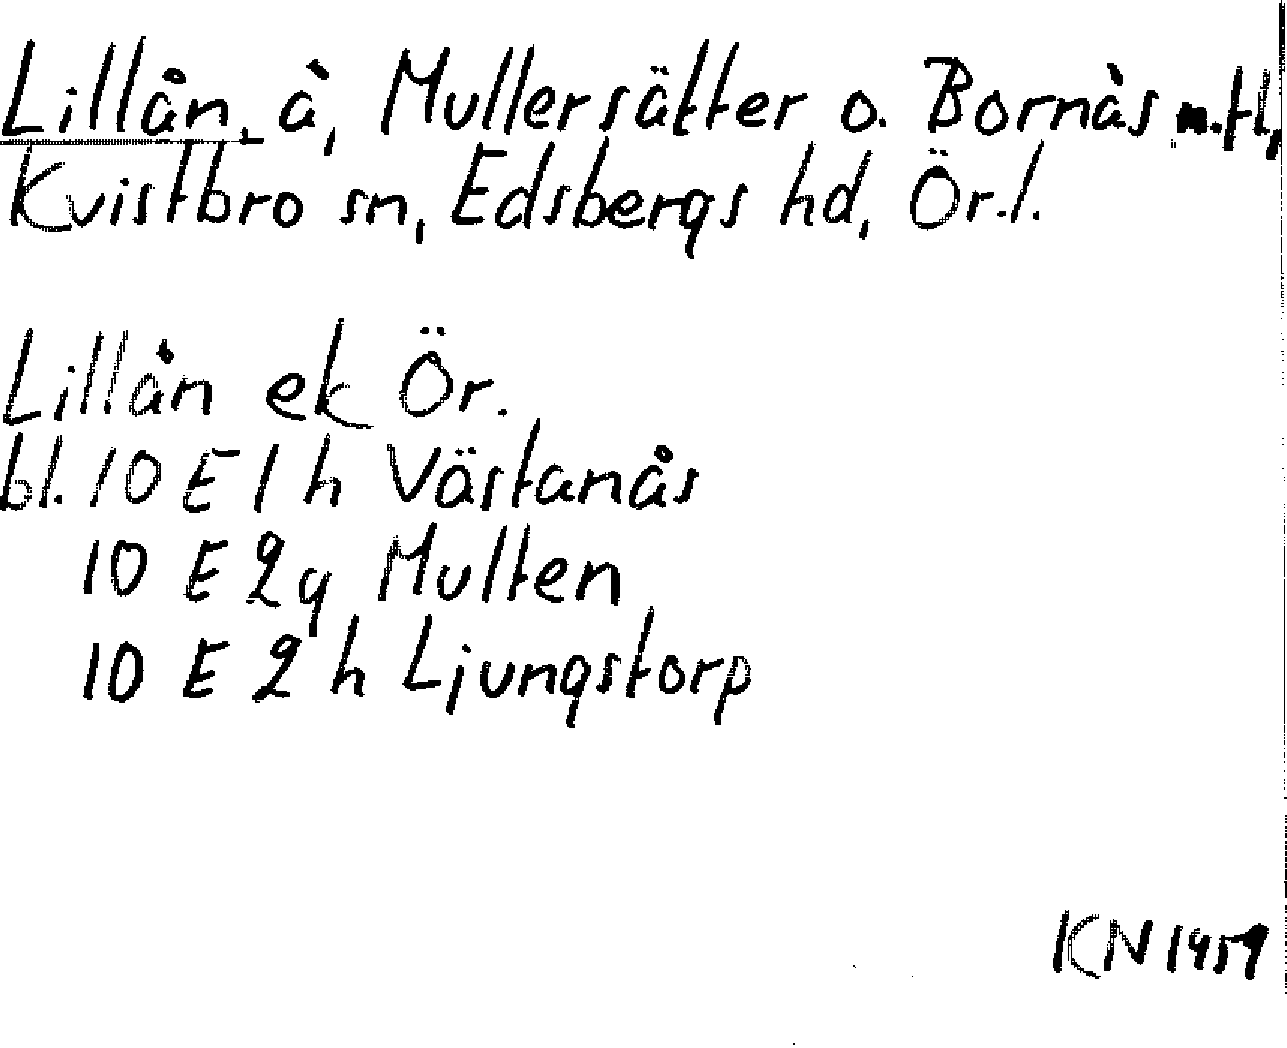 Lillån, å, Mullersätter o. Bornås m.fl,
Kvistbro sn, Edsbergs hd, Ör.l.
Lillån ek Ör.
bl. 10 E 1 h Västanås
10 E 2 g Multen
10 E 2 h Ljungstorp
KN 1959